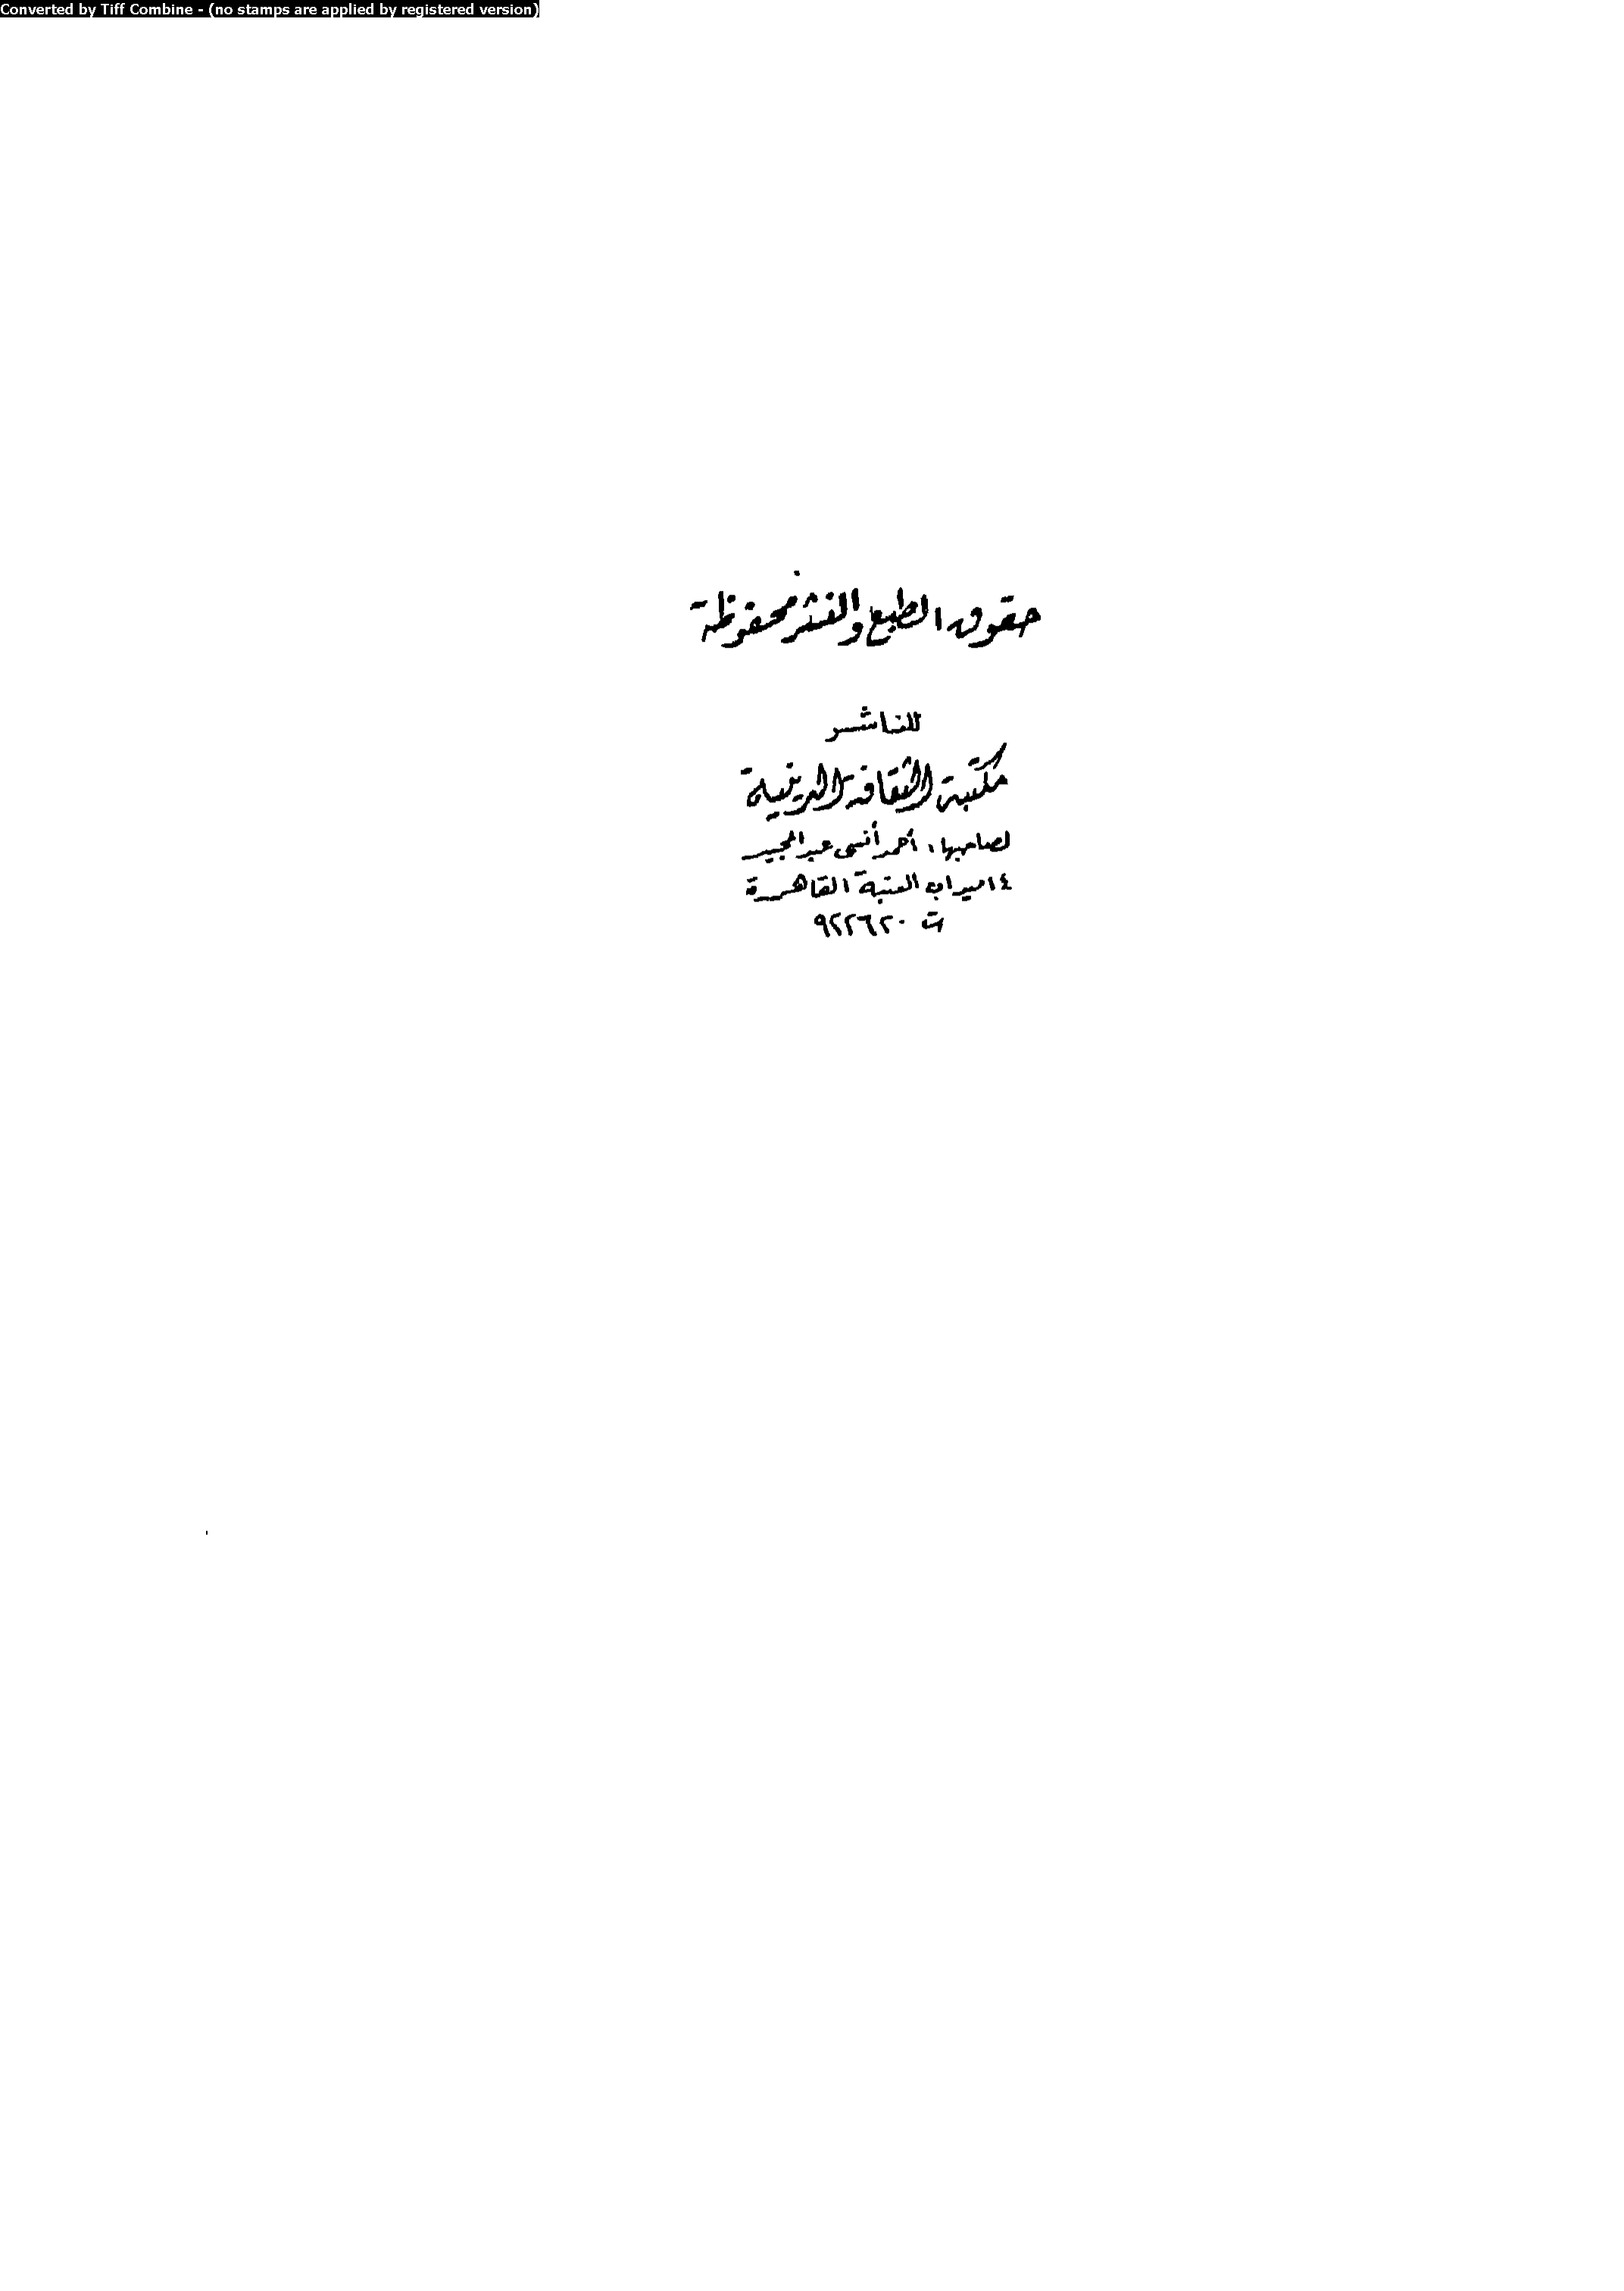 Converted by Tiff Combine - (no stamps are applied by registered version)
حقوق الطبع والنشر محفوظة
للناشر
مكتبة الثقافة الدينية
لصاحبها، أحمد أنسى عبد المجيد
١٤ ميدان العتبة القاهرة
ت ٩٢٢٦٢٠